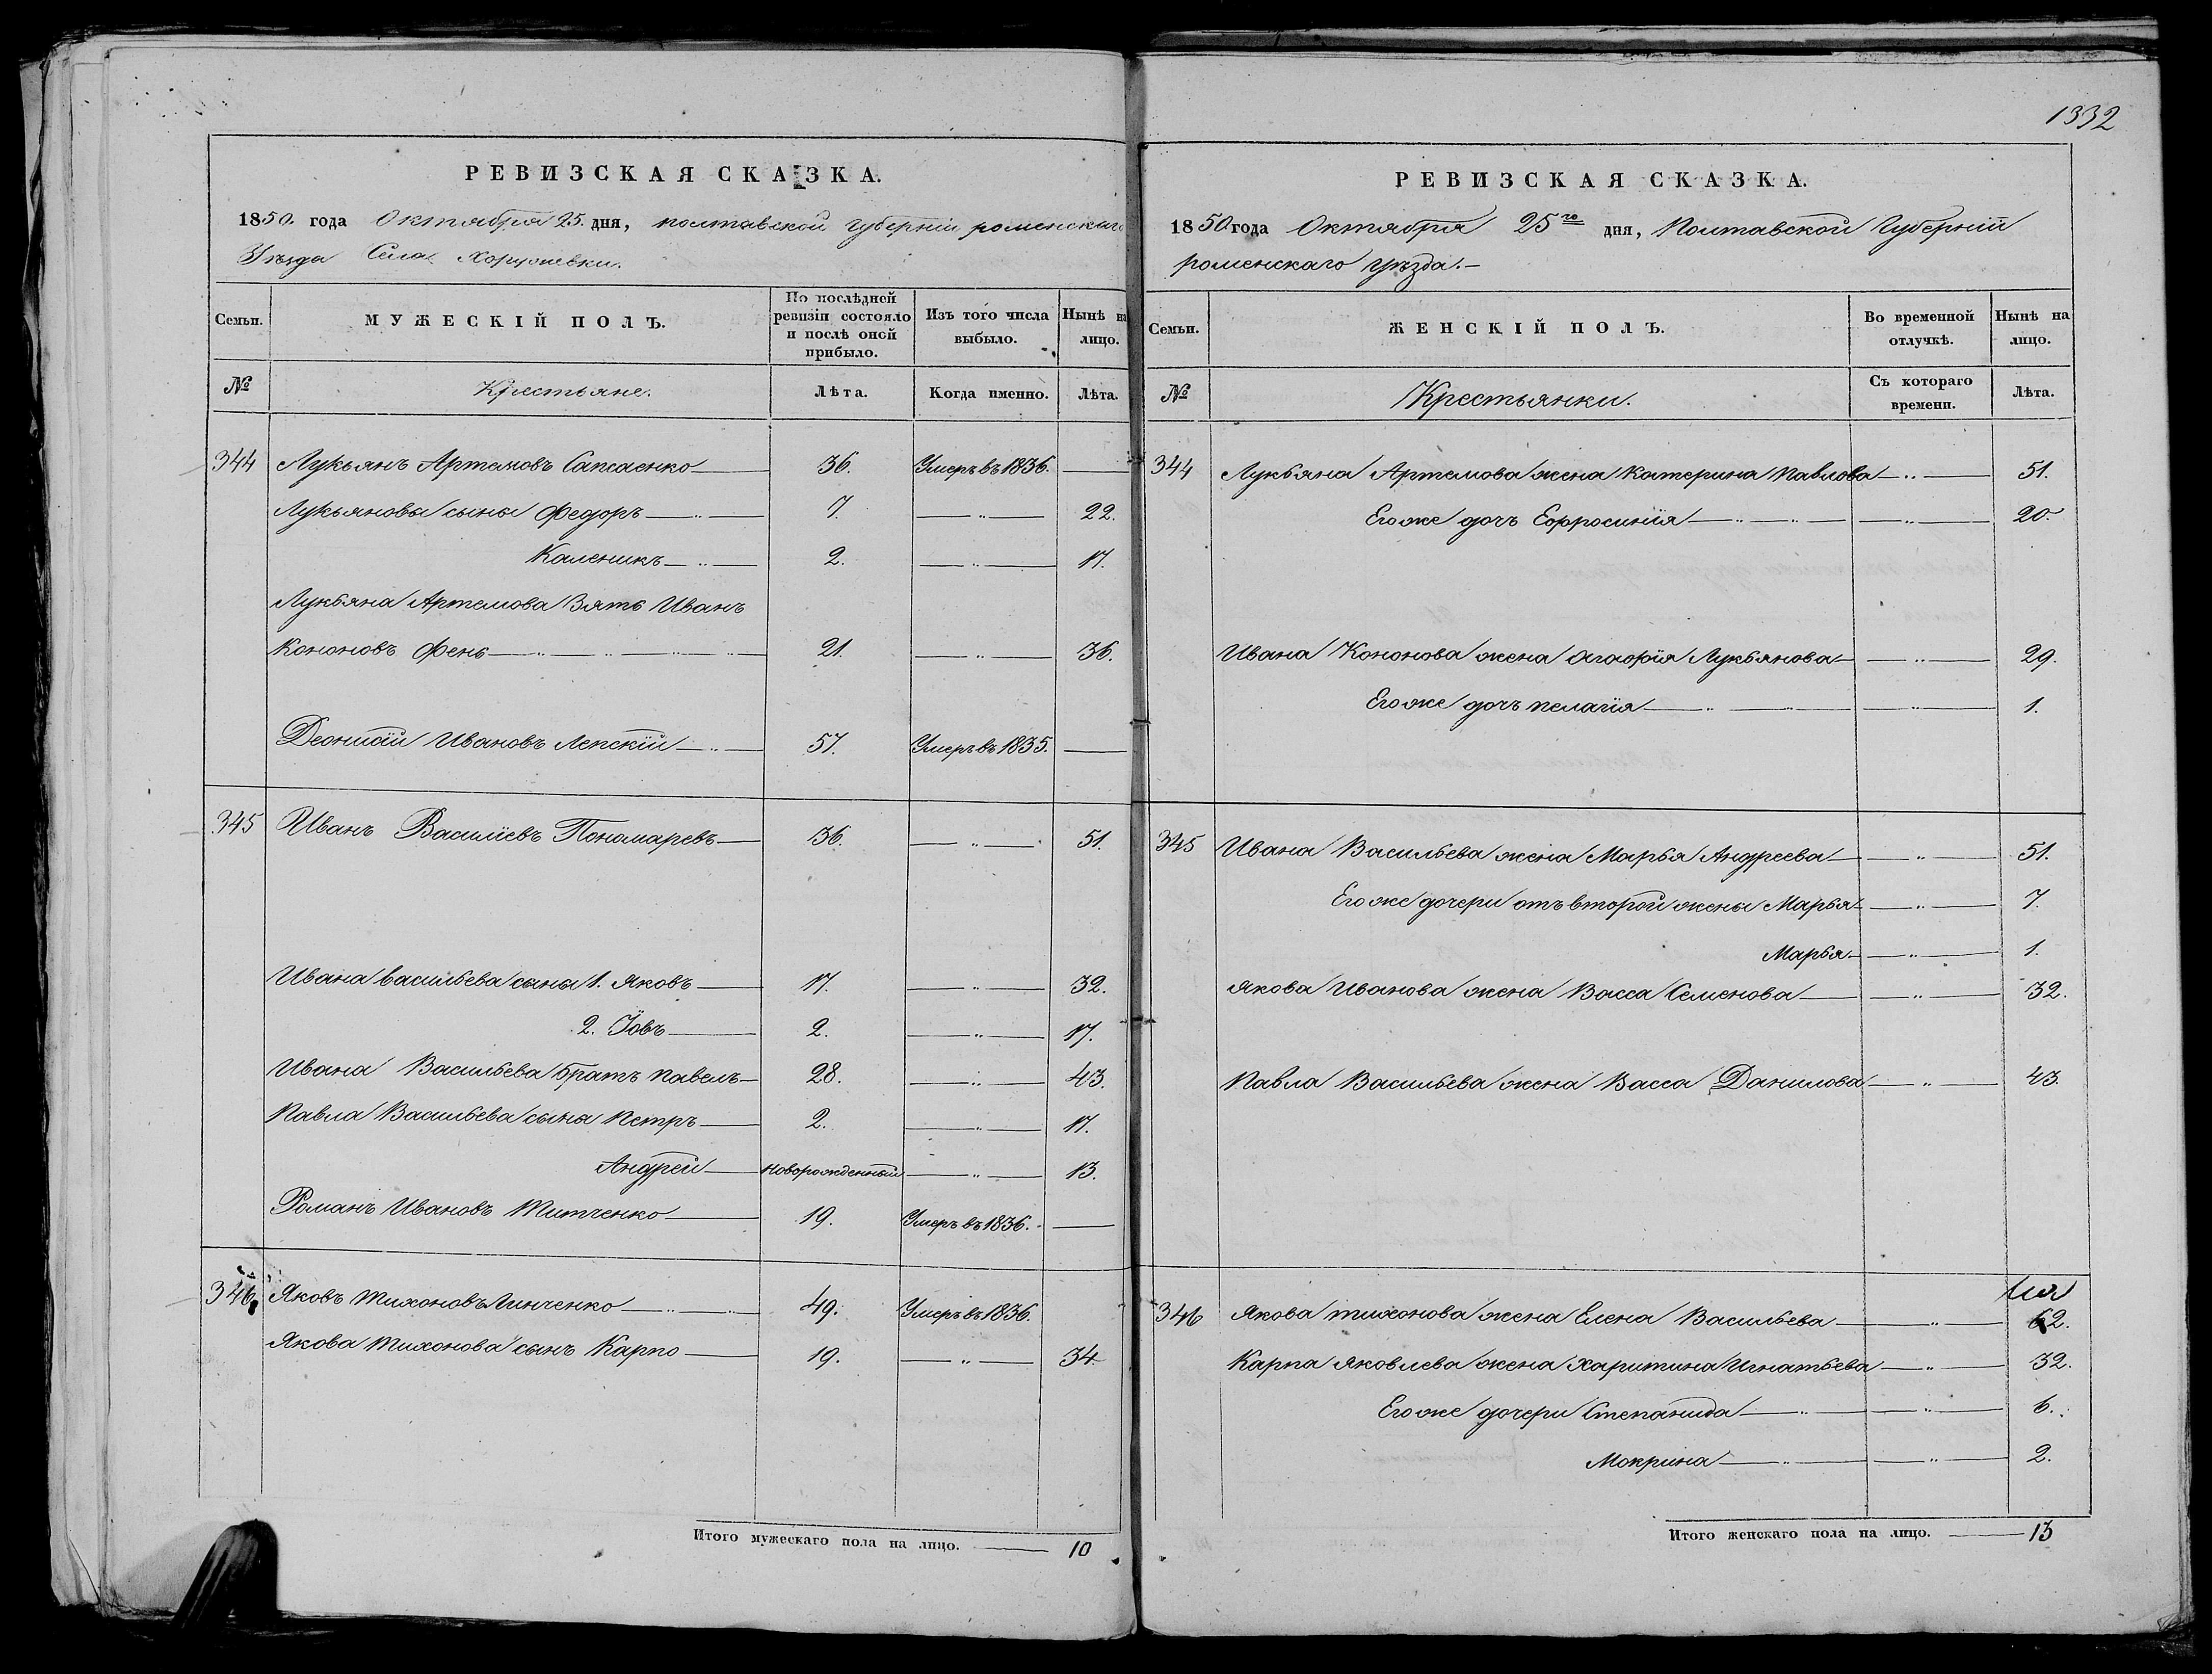 1332
РЕВИЗСКАЯ СКАЗКА.
1850. года Октября 25. дня, полтавской губерніи роменскаго
Уѣзда Села Хоружевки.
Семьи. МУЖЕСКІЙ ПОЛЪ. По послѣдней ревизіи состояло и послѣ оной прибыло. Изъ того числа выбыло. Нынѣ на лицо.
№ Крестьяне. Лѣта. Когда именно. Лѣта.
344 Лукьянъ Артемовъ Сапсаенко 36. Умеръ въ 1836.
Лукьяновы сыны Федоръ 7. 22.
Каленикъ 2. 17.
Лукьяна Артемова Зять Иванъ
Кононовъ Фень 21. 36.
Деонисій Ивановъ Лепскій 57. Умеръ въ 1835.
345 Иванъ Василіевъ Пономаревъ 36. 51.
Ивана васильева сыны 1. Яковъ 17. 32.
2. Іовъ 2. 17.
Ивана Васильева братъ павелъ 28. 43.
Павла Васильева сыны Петръ 2. 17.
Андрей новорожденный 13.
Романъ Ивановъ Митченко 19. Умеръ въ 1836.
346 Яковъ Тихоновъ Линченко 49. Умеръ въ 1836.
Якова Тихонова сынъ Карпо 19. 34.
Итого мужескаго пола на лицо. 10
РЕВИЗСКАЯ СКАЗКА.
1850 года Октября 25го дня, Полтавской Губерніи
роменскаго уѣзда.
Семьи. ЖЕНСКІЙ ПОЛЪ. Во временной отлучкѣ. Нынѣ на лицо.
№ Крестьянки. Съ котораго времени. Лѣта.
344 Лукьяна Артемова жена Катерина Павлова 51.
Его же дочь Ефросинія 20.
Ивана Кононова жена Агафія Лукьянова 29.
Его же дочь пелагія 1.
345 Ивана Васильева жена Марья Андреева 51.
Его же дочери отъ второй жены Марья 7.
Марья 1.
Якова Иванова жена Васса Семенова 32.
Павла Васильева жена Васса Данилова 43.
346 Якова тихонова жена Елена Васильева 62.
Карпа Яковлева жена харитина Игнатьева 32.
Его же дочери Степанида 6.
Мокрина 2.
Итого женскаго пола на лицо. 13